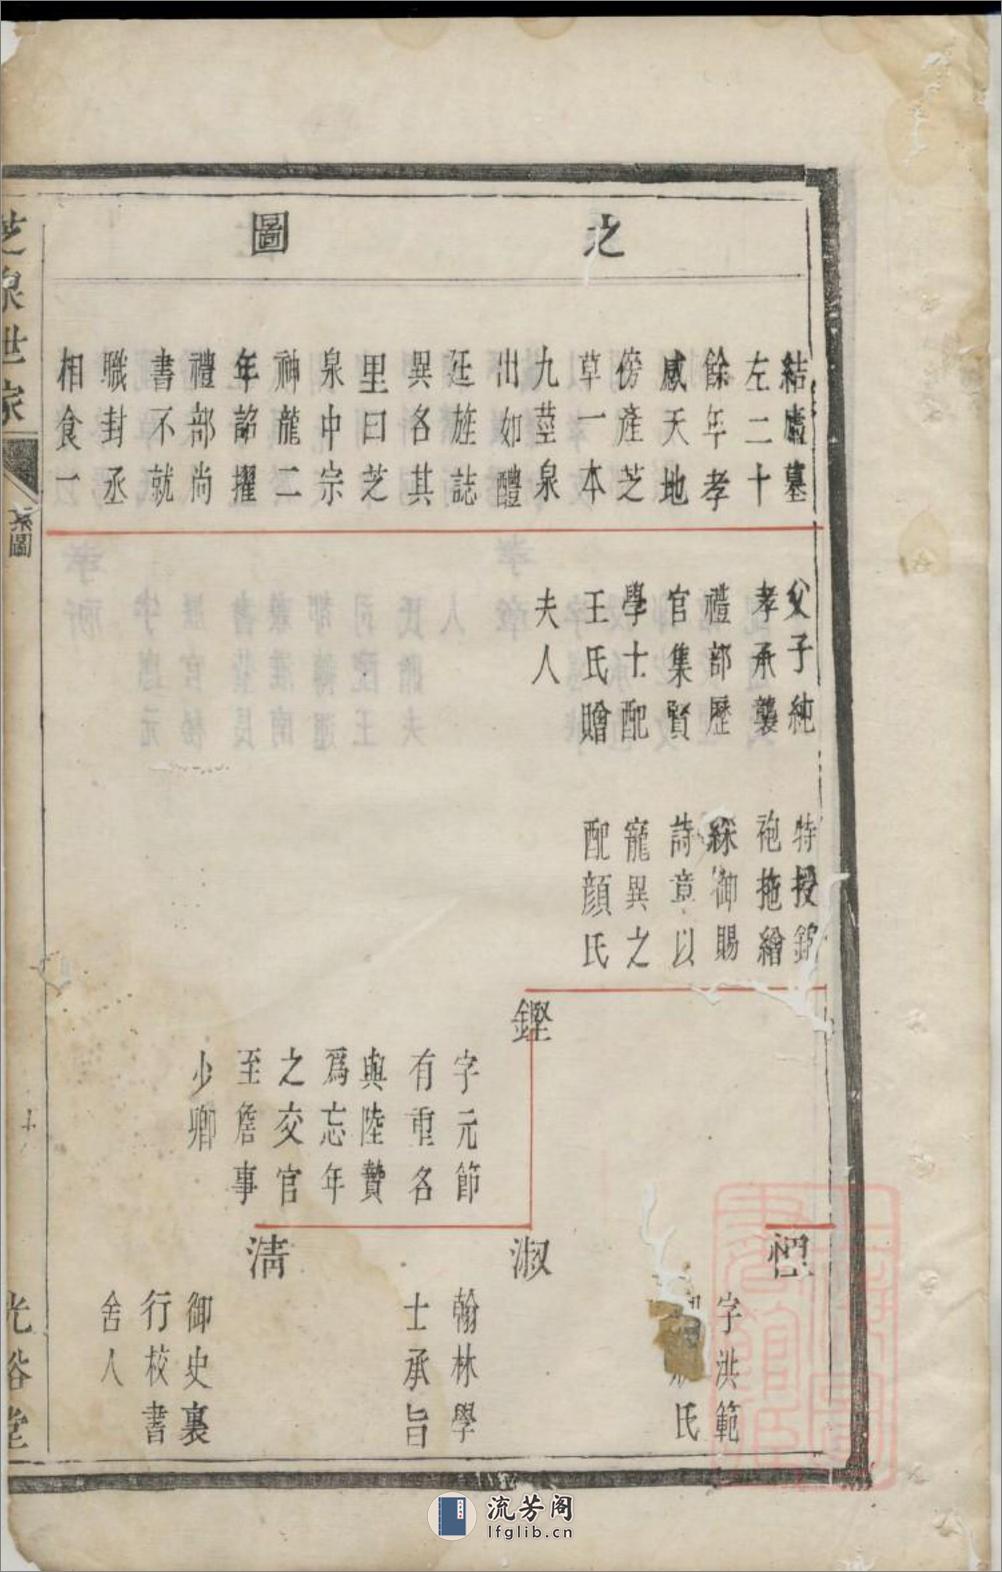 之圖
結廬墓
左二十
餘年孝
感天地
傍產芝
草一本
九莖泉
出如醴
廷旌誌
異各其
里曰芝
泉中宗
神龍二
年詔擢
禮部尚
書不就
職封丞
相食一
父子純
孝承襲
禮部歷
官集賢
學士配
王氏贈
夫人
特授錦
袍拖繪
綵御賜
詩章以
寵異之
配顏氏
鏗
字元節
有重名
與陸贄
爲忘年
之交官
至詹事
少卿
字洪範
氏
淑
翰林學
士承旨
清
御史裏
行校書
舍人
芝泉世家
系圖
十
光裕堂
流芳阁
lfglib.cn